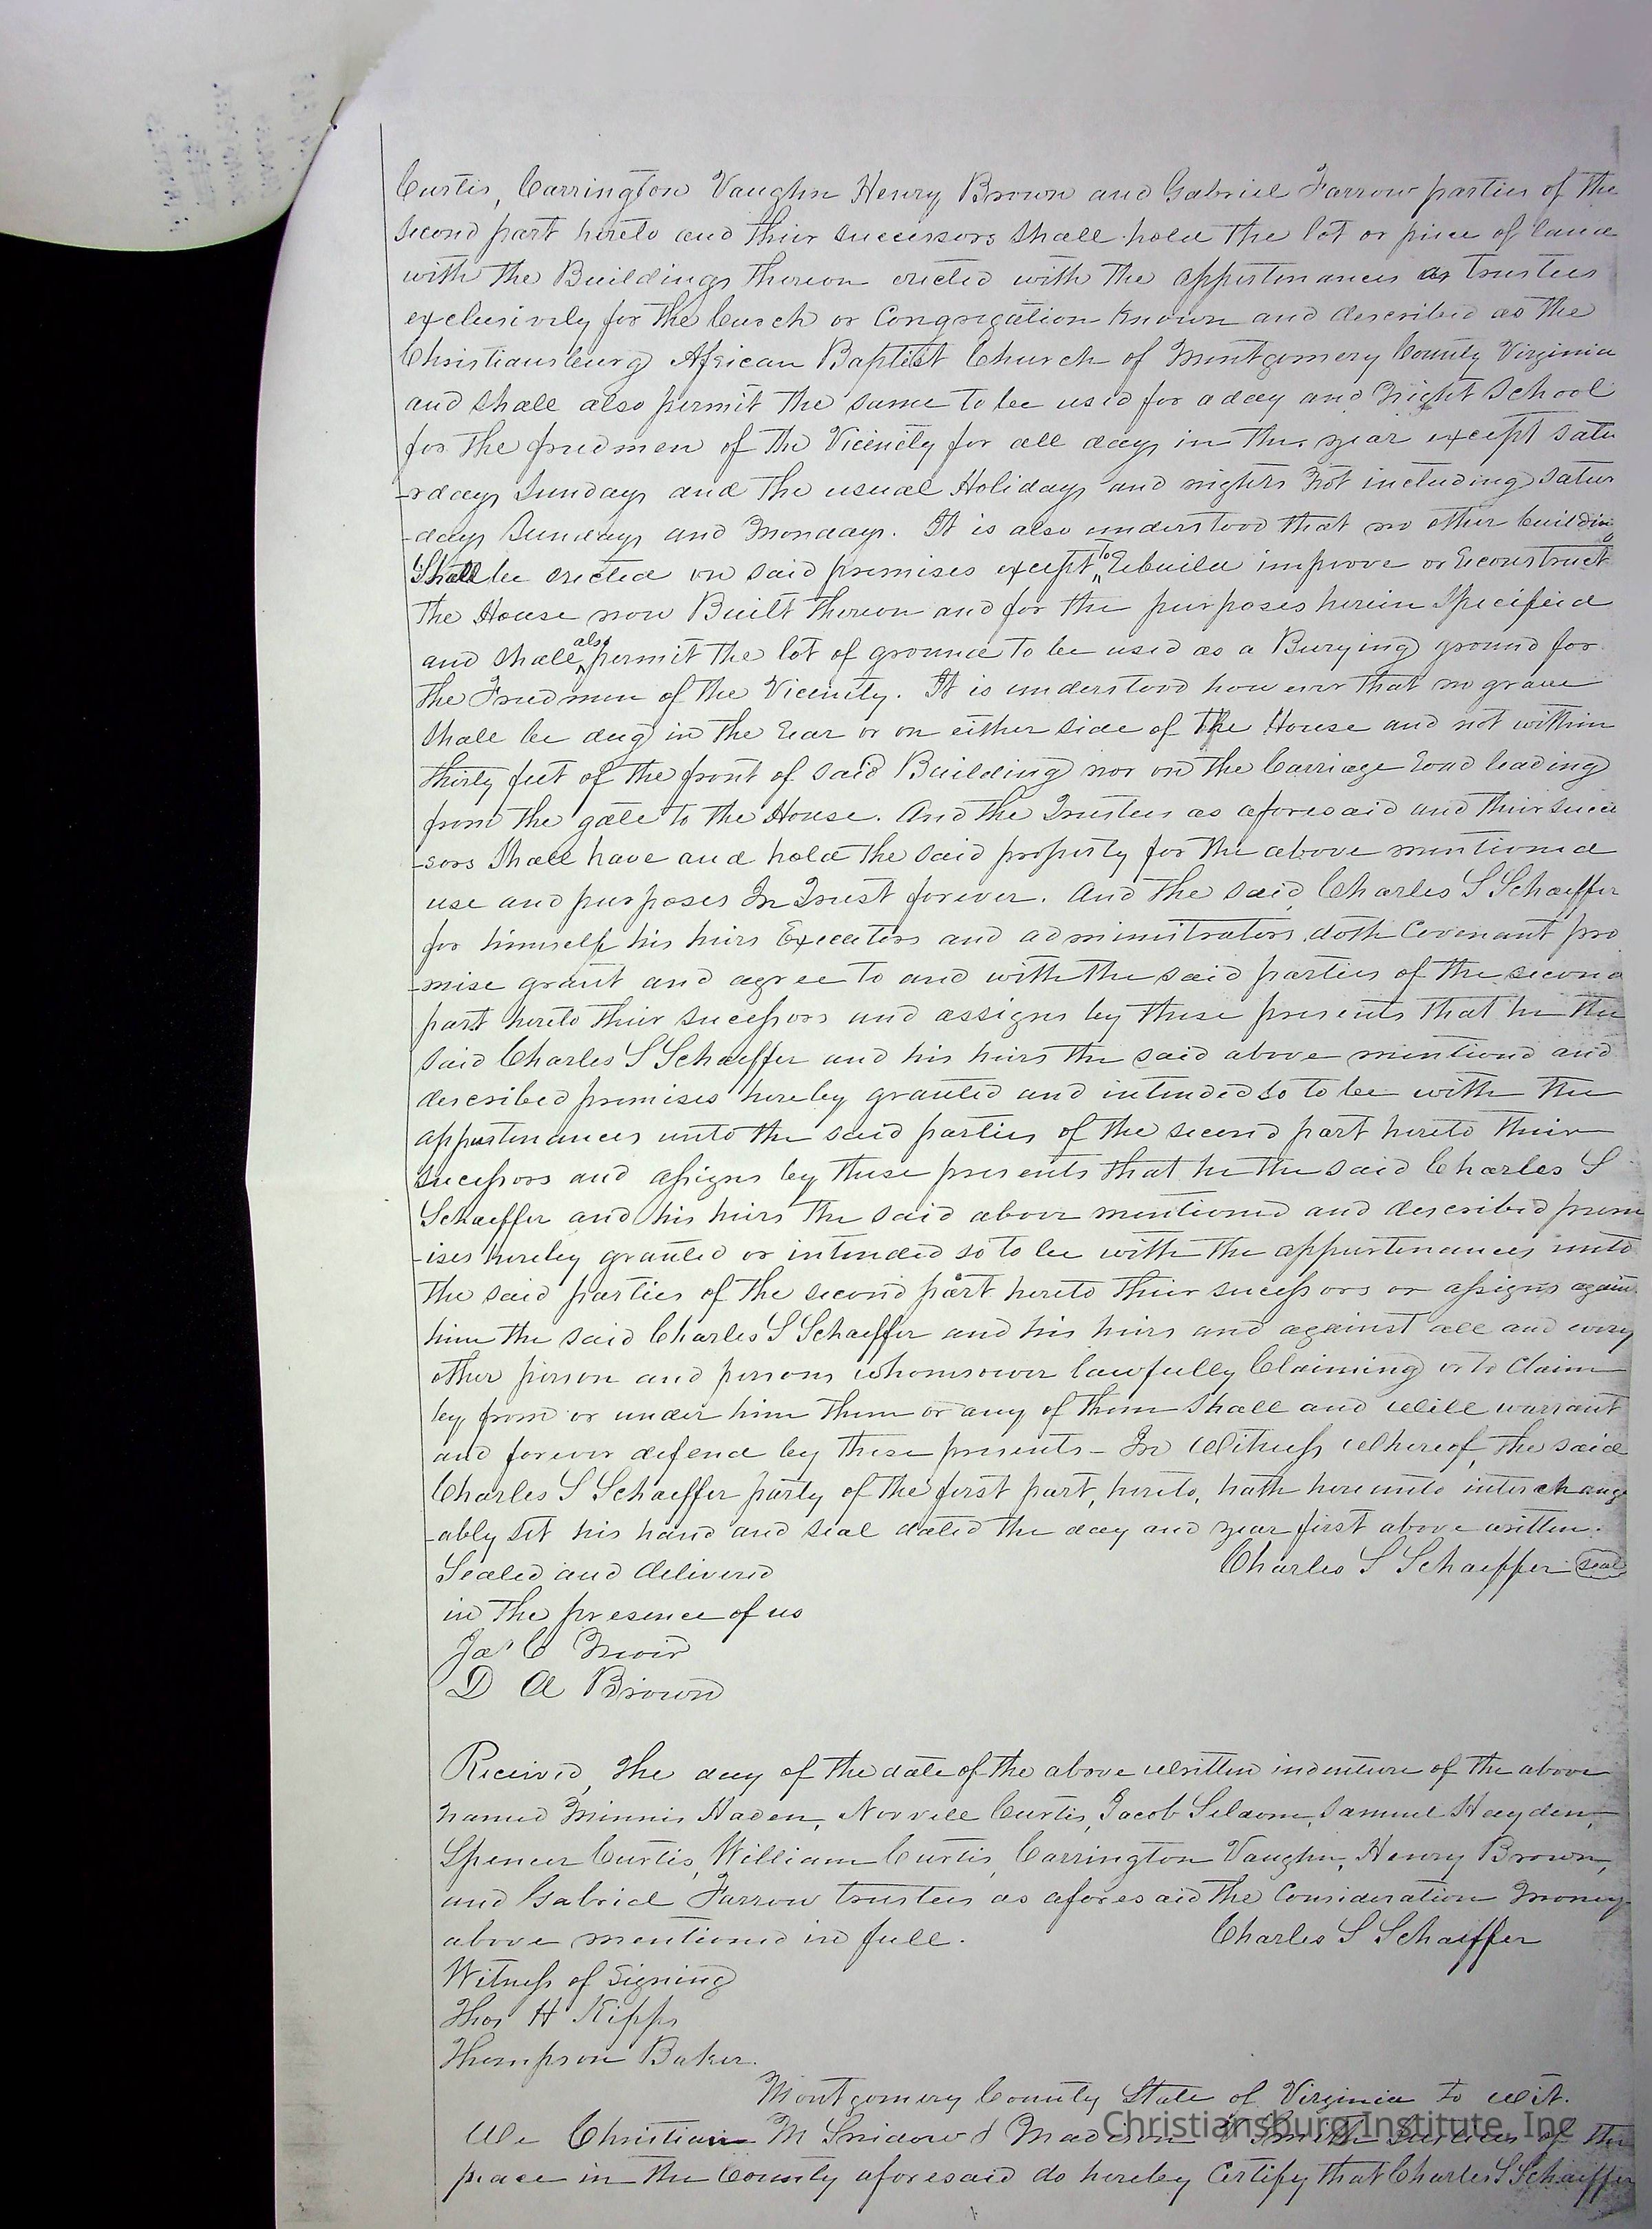 Curtis, Carrington Vaughn Henry Brown and Gabriel Farrow parties of the
second part hereto and their successors shall hold the lot or piece of land
with the Buildings thereon erected with the appertenances as trustees
exclusively for the Curch or Congregation Known and described as the
Christiansburg African Baptist Church of Montgomery County Virginia
and shall also permit the same to be used for a day and Night School
for the freedmen of the Vicinity for all days in the year except satu
-rdays Sundays and the usual Holidays and nights not including satur
-days Sundays and Mondays. It is also understood that no other building
Shall be erected on said premises except to Rebuild improve or Reconstruct
the House now Built thereon and for the purposes herein Specified
and shall also permit the lot of ground to be used as a Burying ground for
the Freedmen of the Vicinity. It is understood however that no grave
shall be dug in the Rear or on either side of the House and not within
thirty feet of the front of said Building nor on the Carriage Road leading
from the gate to the House. And the Trustees as aforesaid and their succe
-sors Shall have and hold the said property for the above mentioned
use and purposes In Trust forever. And the said Charles S Schaeffer
for himself his heirs Executors and administrators doth Covenant pro
-mise grant and agree to and with the said parties of the second
part hereto their sucessors and assigns by these presents that he the
said Charles S Schaeffer and his heirs the said above mentiond and
described premises hereby granted and intended so to be with the
appurtenances unto the said parties of the second part hereto their
sucessors and assigns by these presents that he the said Charles S
Schaeffer and his heirs the said above mentioned and described prem
-ises hereby granted or intended so to be with the appurtenances unto
the said parties of the second part hereto their sucessors or assigns again
him the said Charles S Schaeffer and his heirs and against all and every
other person and persons whomsoever lawfully Claiming or to Claim
by from or under him them or any of them Shall and Will warrant
and forever defend by these presents - In Witness Whereof, the said
Charles S Schaeffer party of the first part, hereto, hath hereunto interchang
-ably set his hand and seal dated the day and year first above written.
Sealed and delivered Charles S Schaeffer seal
in the presence of us
Jas C Muir
D A Brown
Received, the day of the date of the above Written indenture of the above
named Minnis Haden, Norvell Curtis, Jacob Seldom, Samuel Hayden,
Spencer Curtis, William Curtis, Carrington Vaughn, Henry Brown,
and Gabriel Farrow trustees as aforesaid the Consideration Money
above mentioned in full. Charles S Schaeffer
Witness of Signing
Thos H Kipps
Thompson Baker.
Montgomery County State of Virginia to Wit.
We Christian M Snidow & Madison Smith Justices of the
peace in the County aforesaid do hereby Certify that Charles S Schaeffer
Christiansburg Institute, Inc